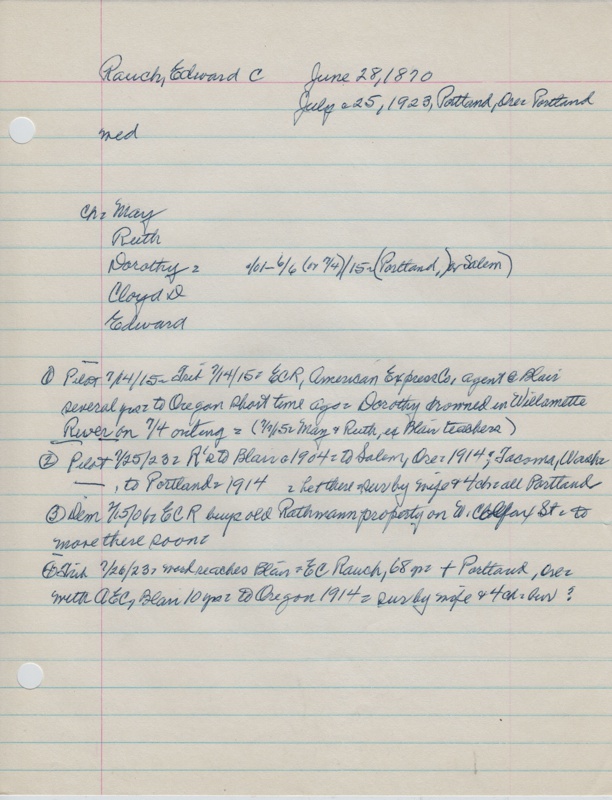 Rauch, Edward C June 28, 1870
July 25, 1923, Portland, Ore = Portland
med
ch = May
Ruth
Dorothy = c/01 - 6/6 (or 7/4)/15 = (Portland,) or Salem)
Cloyd D
Edward
① Pilot 7/14/15 = Trib 7/14/15 = ECR, American Express Co, agent @ Blair
several yrs = to Oregon short time ago = Dorothy drowned in Willamette
River on 7/4 outing = ( May & Ruth, Blair teachers)
② Pilot 7/25/23 = R's to Blair c 1904 = to Salem, Ore = 1914; Tacoma, Wash
—, to Portland = 1914 = sur by wife & 4 ch = all Portland
③ Dem /15/06 = ECR buys old Rathmann property on W. Colfax St = to
move there soon =
④ Trib 7/26/23 = word reaches Blair = EC Rauch, 68 yr + Portland, Ore =
with AEC, Blair 10 yrs = to Oregon 1914 = sur by wife & 4 ch = ?